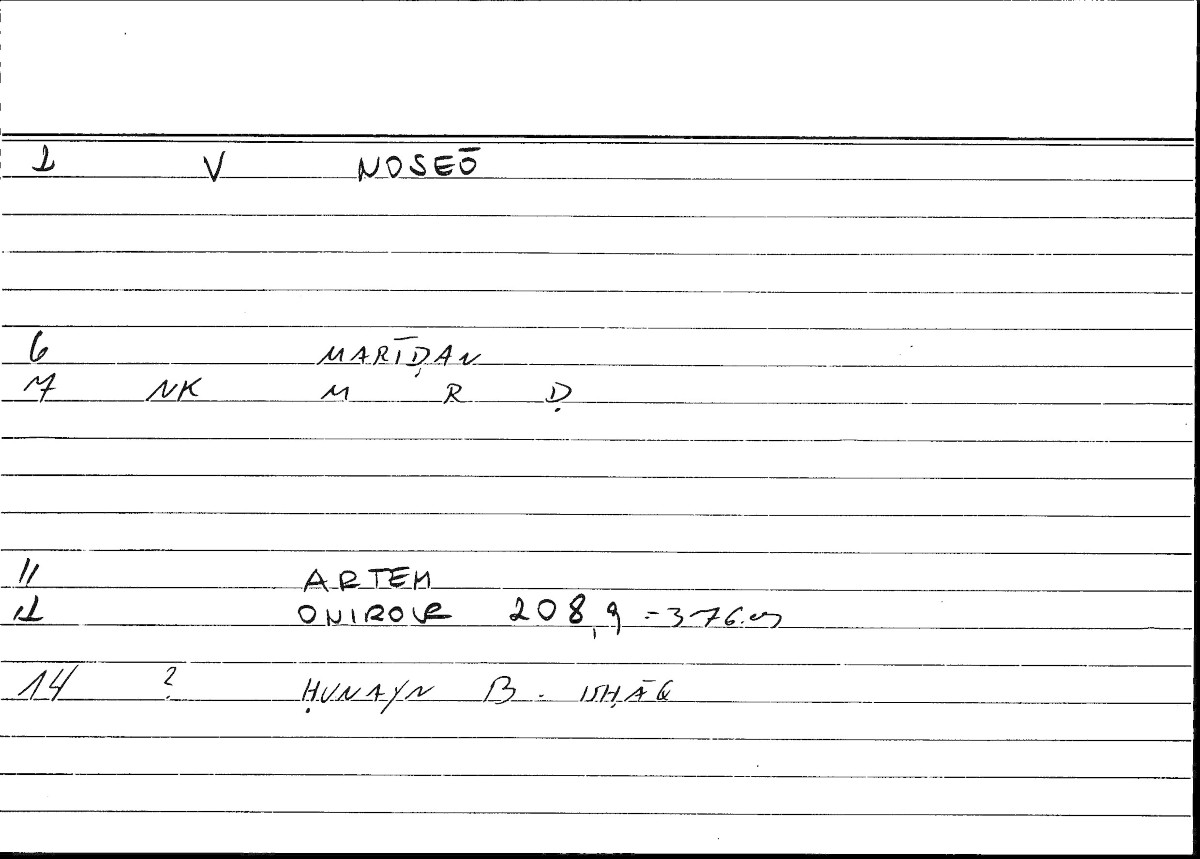 1 V NOSEŌ
6 MARĪḌAN
7 NK M R Ḍ
11 ARTEM
12 ONIROCR 208,9 = 376.
14 ? ḤUNAYN B. ISḤĀQ